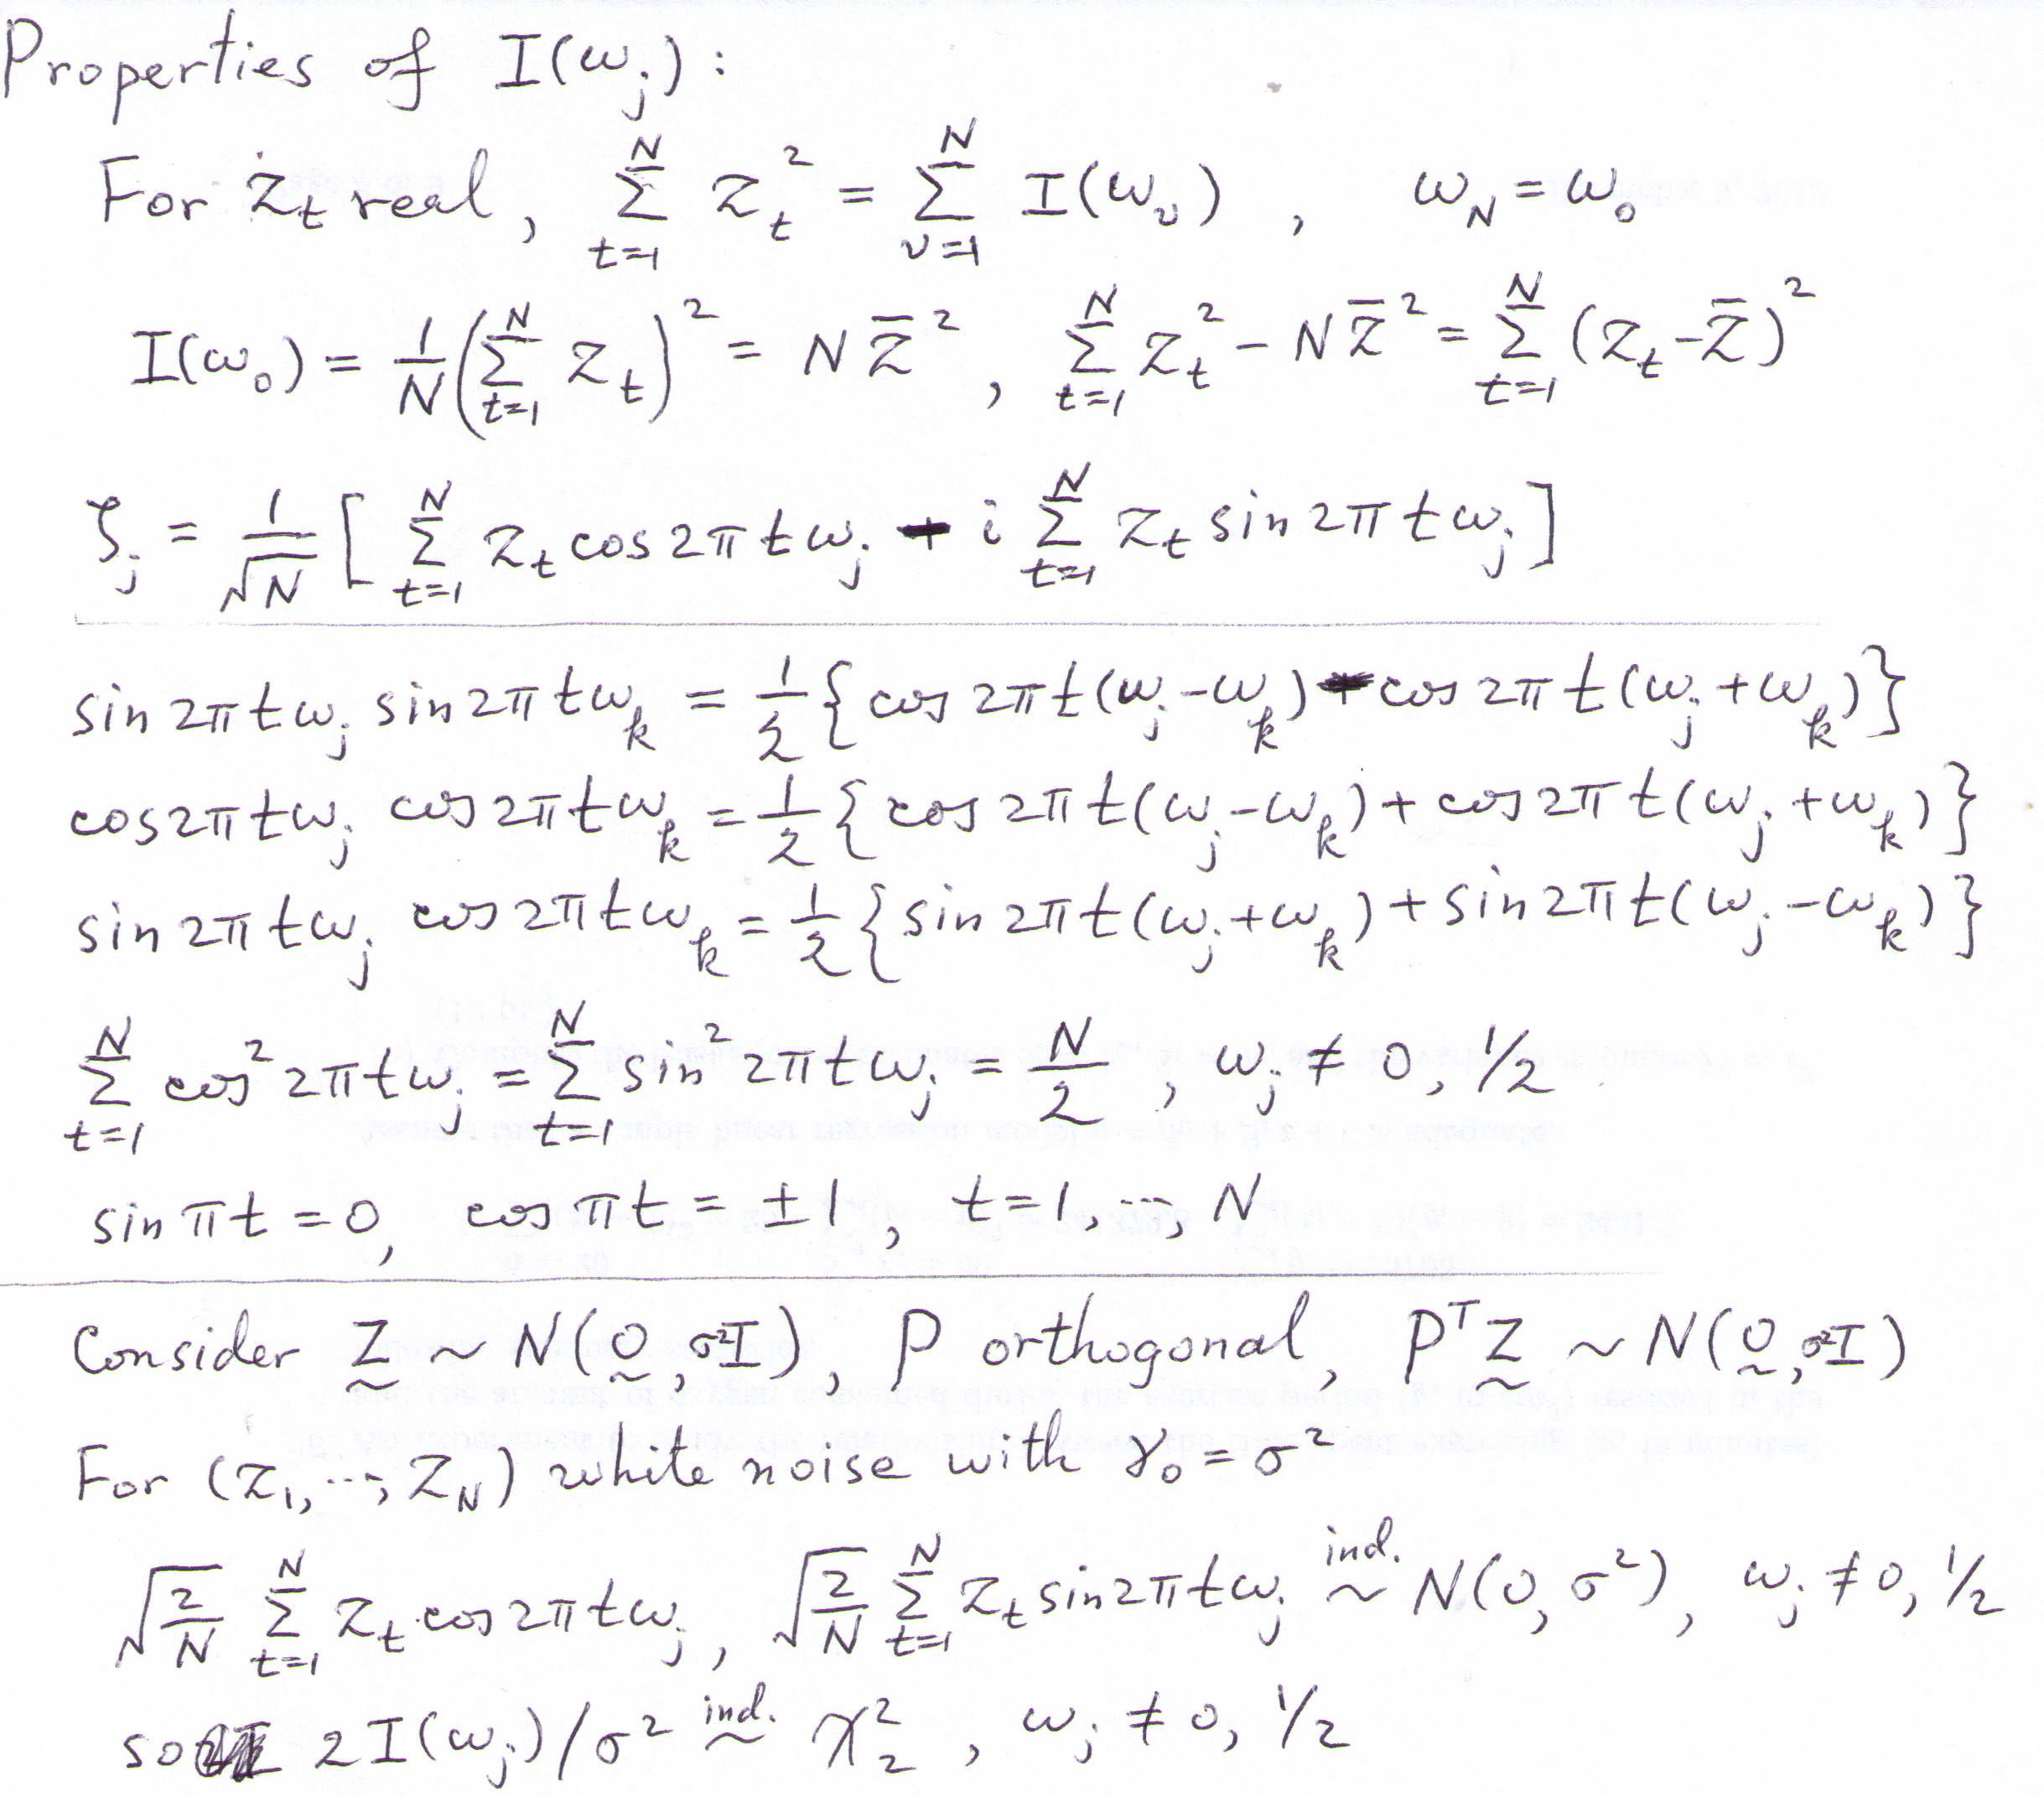 Properties of I(ω_j) :
For Z_t real, Σ_{t=1}^{N} Z_t^2 = Σ_{ν=1}^{N} I(ω_ν) , ω_N = ω_0
I(ω_0) = 1/N (Σ_{t=1}^{N} Z_t)^2 = N Z̄^2 , Σ_{t=1}^{N} Z_t^2 - N Z̄^2 = Σ_{t=1}^{N} (Z_t - Z̄)^2
ζ_j = 1/√N [ Σ_{t=1}^{N} Z_t cos 2π t ω_j - i Σ_{t=1}^{N} Z_t sin 2π t ω_j ]
sin 2π t ω_j sin 2π t ω_k = 1/2 { cos 2π t (ω_j - ω_k) - cos 2π t (ω_j + ω_k) }
cos 2π t ω_j cos 2π t ω_k = 1/2 { cos 2π t (ω_j - ω_k) + cos 2π t (ω_j + ω_k) }
sin 2π t ω_j cos 2π t ω_k = 1/2 { sin 2π t (ω_j + ω_k) + sin 2π t (ω_j - ω_k) }
Σ_{t=1}^{N} cos^2 2π t ω_j = Σ_{t=1}^{N} sin^2 2π t ω_j = N/2 , ω_j ≠ 0, 1/2
sin π t = 0, cos π t = ±1, t = 1, ..., N
Consider Z̰ ~ N(0̰, σ^2 I), P orthogonal, P^T Z̰ ~ N(0̰, σ^2 I)
For (Z_1, ..., Z_N) white noise with γ_0 = σ^2
√(2/N) Σ_{t=1}^{N} Z_t cos 2π t ω_j , √(2/N) Σ_{t=1}^{N} Z_t sin 2π t ω_j ind.~ N(0, σ^2), ω_j ≠ 0, 1/2
so 2 I(ω_j)/σ^2 ind.~ χ_2^2 , ω_j ≠ 0, 1/2